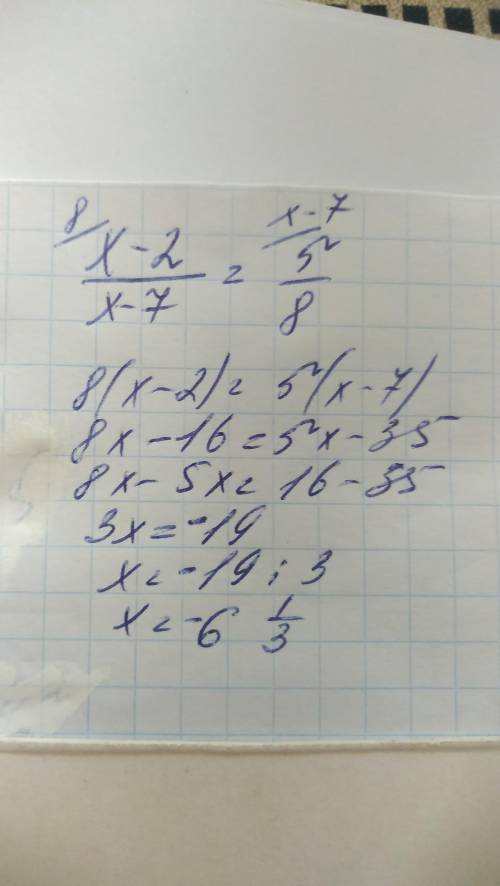 8/ x-2/x-7 = x-7/ 5/8
8(x-2)= 5(x-7)
8x-16=5x-35
8x-5x=16-35
3x=-19
x=-19:3
x=-6 1/3